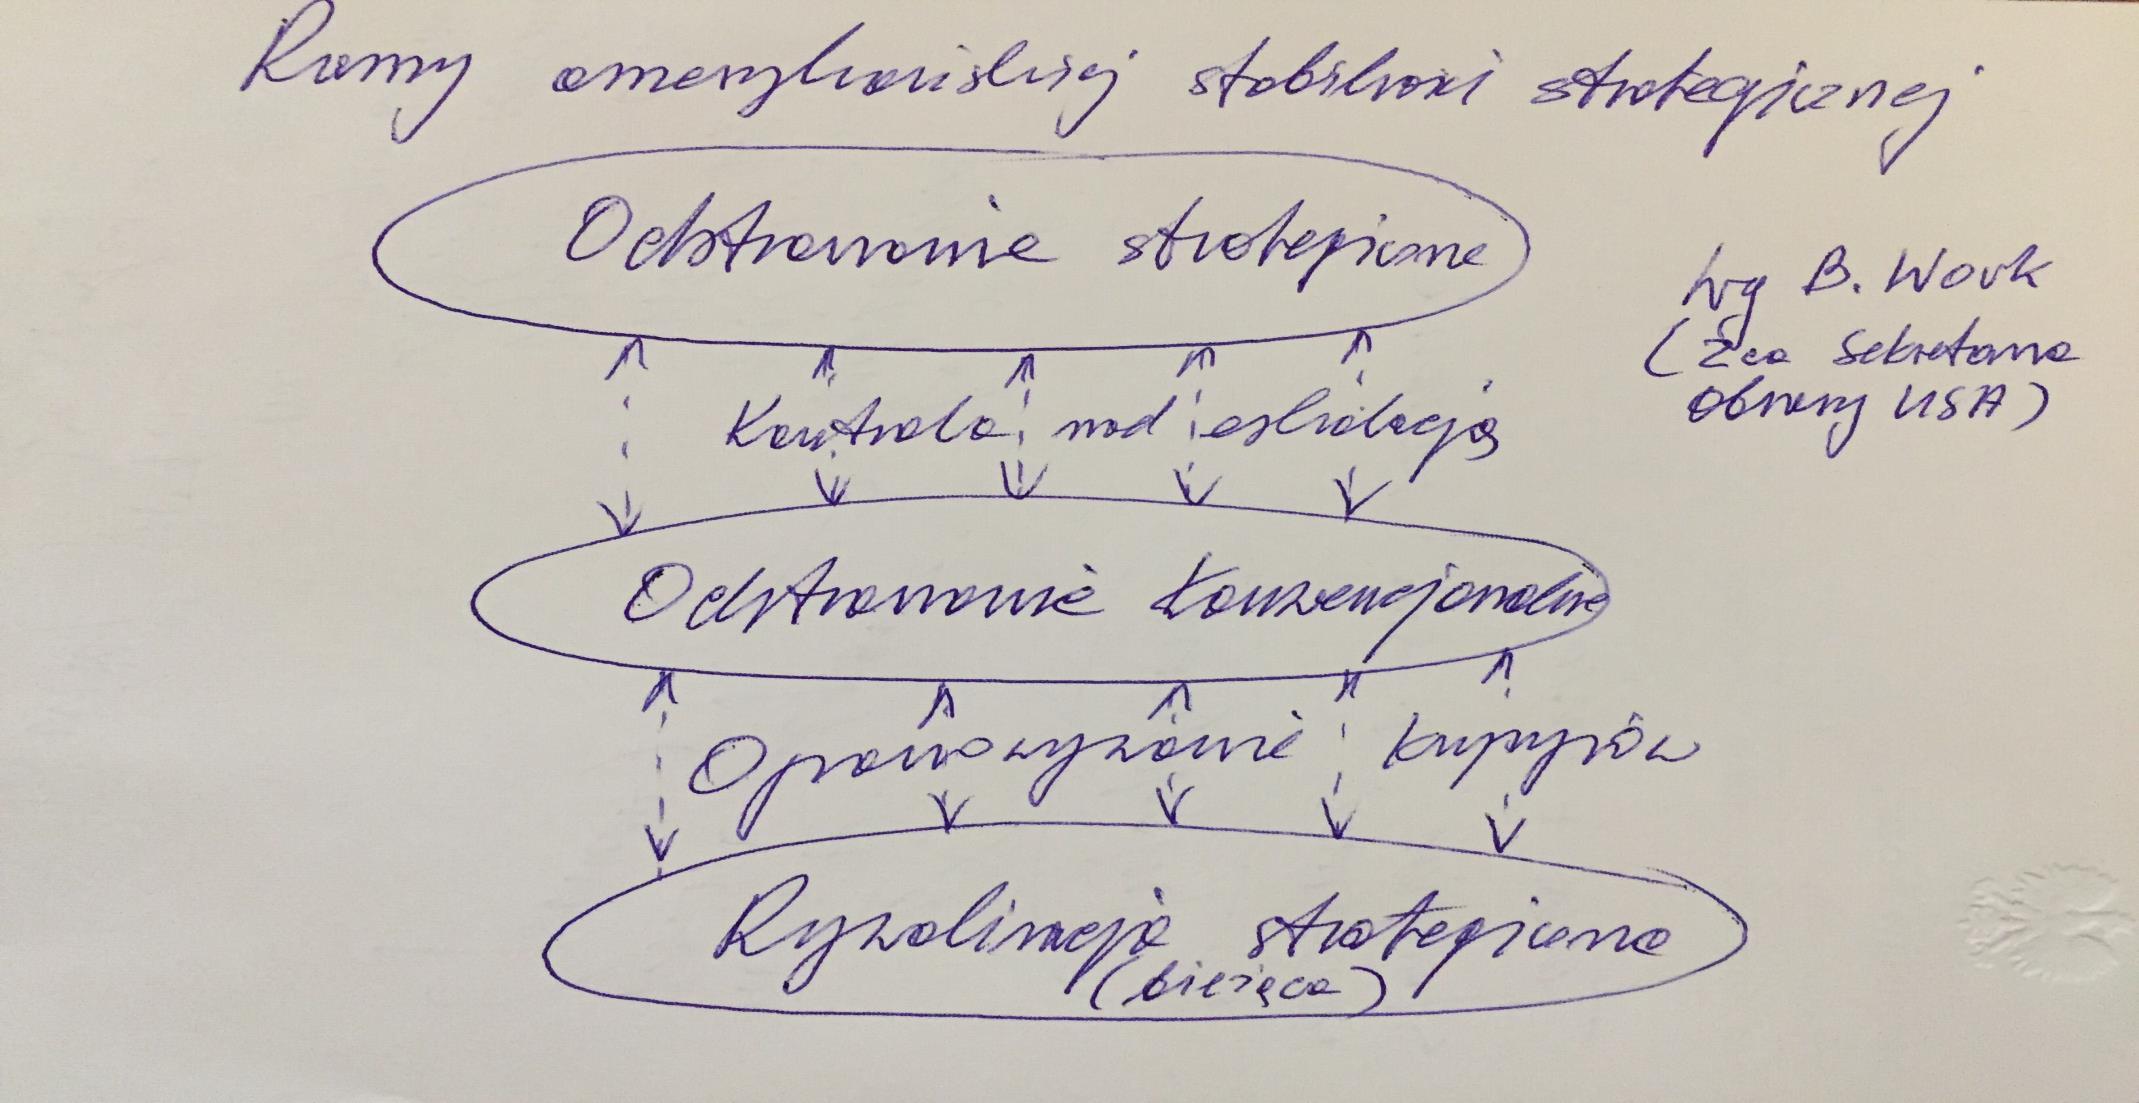 Ramy amerykańskiej stabilności strategicznej
Odstraszanie strategiczne
Wg B. Work
(Zca Sekretarza
Obrony USA)
Kontrola nad eskalacją
Odstraszanie konwencjonalne
Oprowadzanie kryzysów
Rywalizacja strategiczna
(bieżąca)